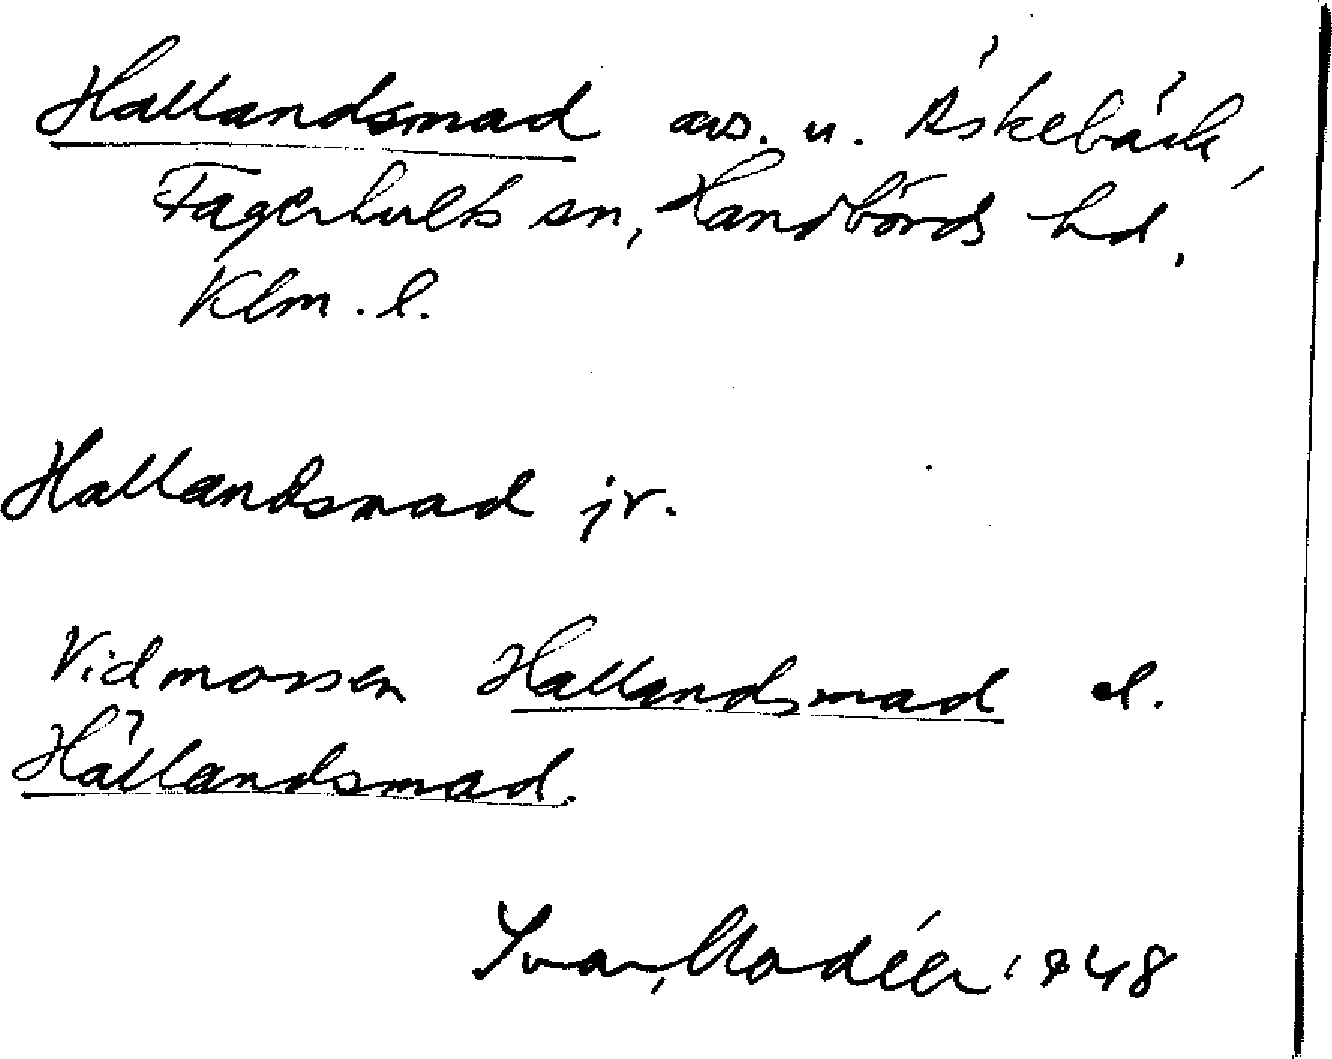 Hallandsmad avs. u. Äskebäck,
Fagerhults sn, Handbörds hd,
Klm. l.
Hallandsmad jr.
Vidmossen Hallandsmad el.
Hällandsmad.
Ivar Modéer 1948